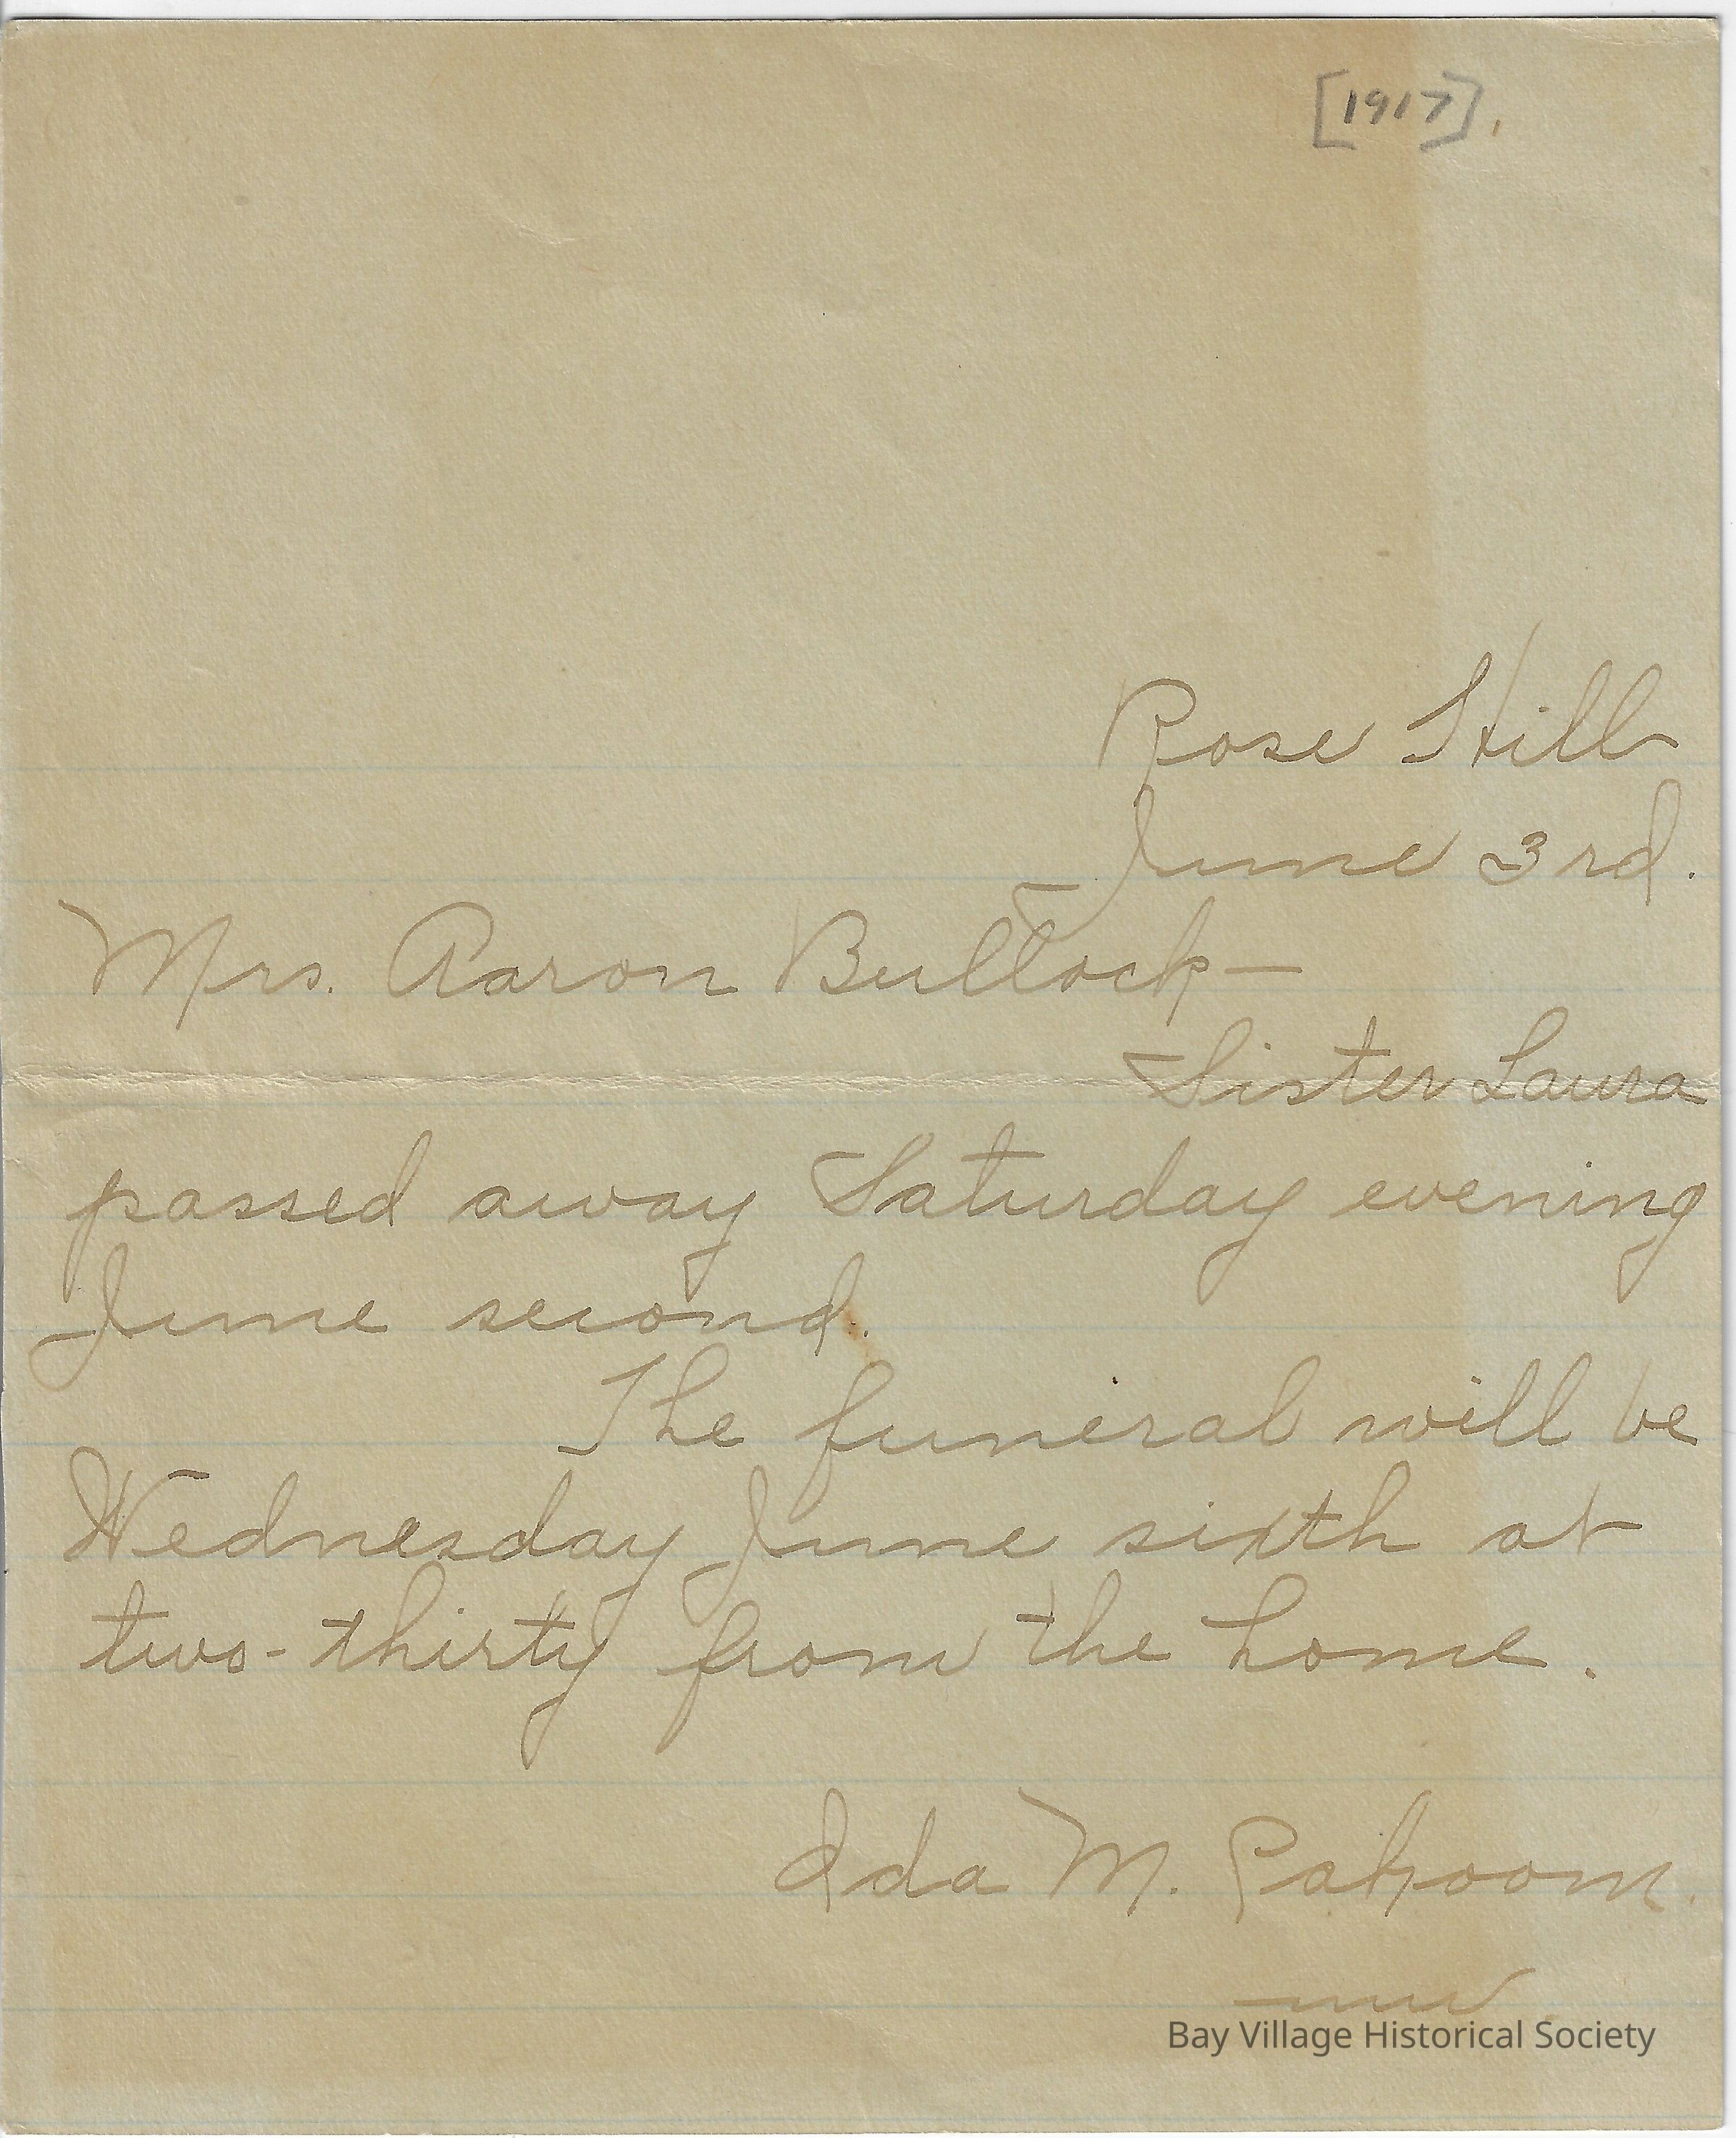 [1917].
Rose Hill
June 3rd.
Mrs. Aaron Bullock—
Sister Laura
passed away Saturday evening
June second.
The funeral will be
Wednesday June sixth at
two-thirty from the home.
Ida M. Cahoon.
Bay Village Historical Society